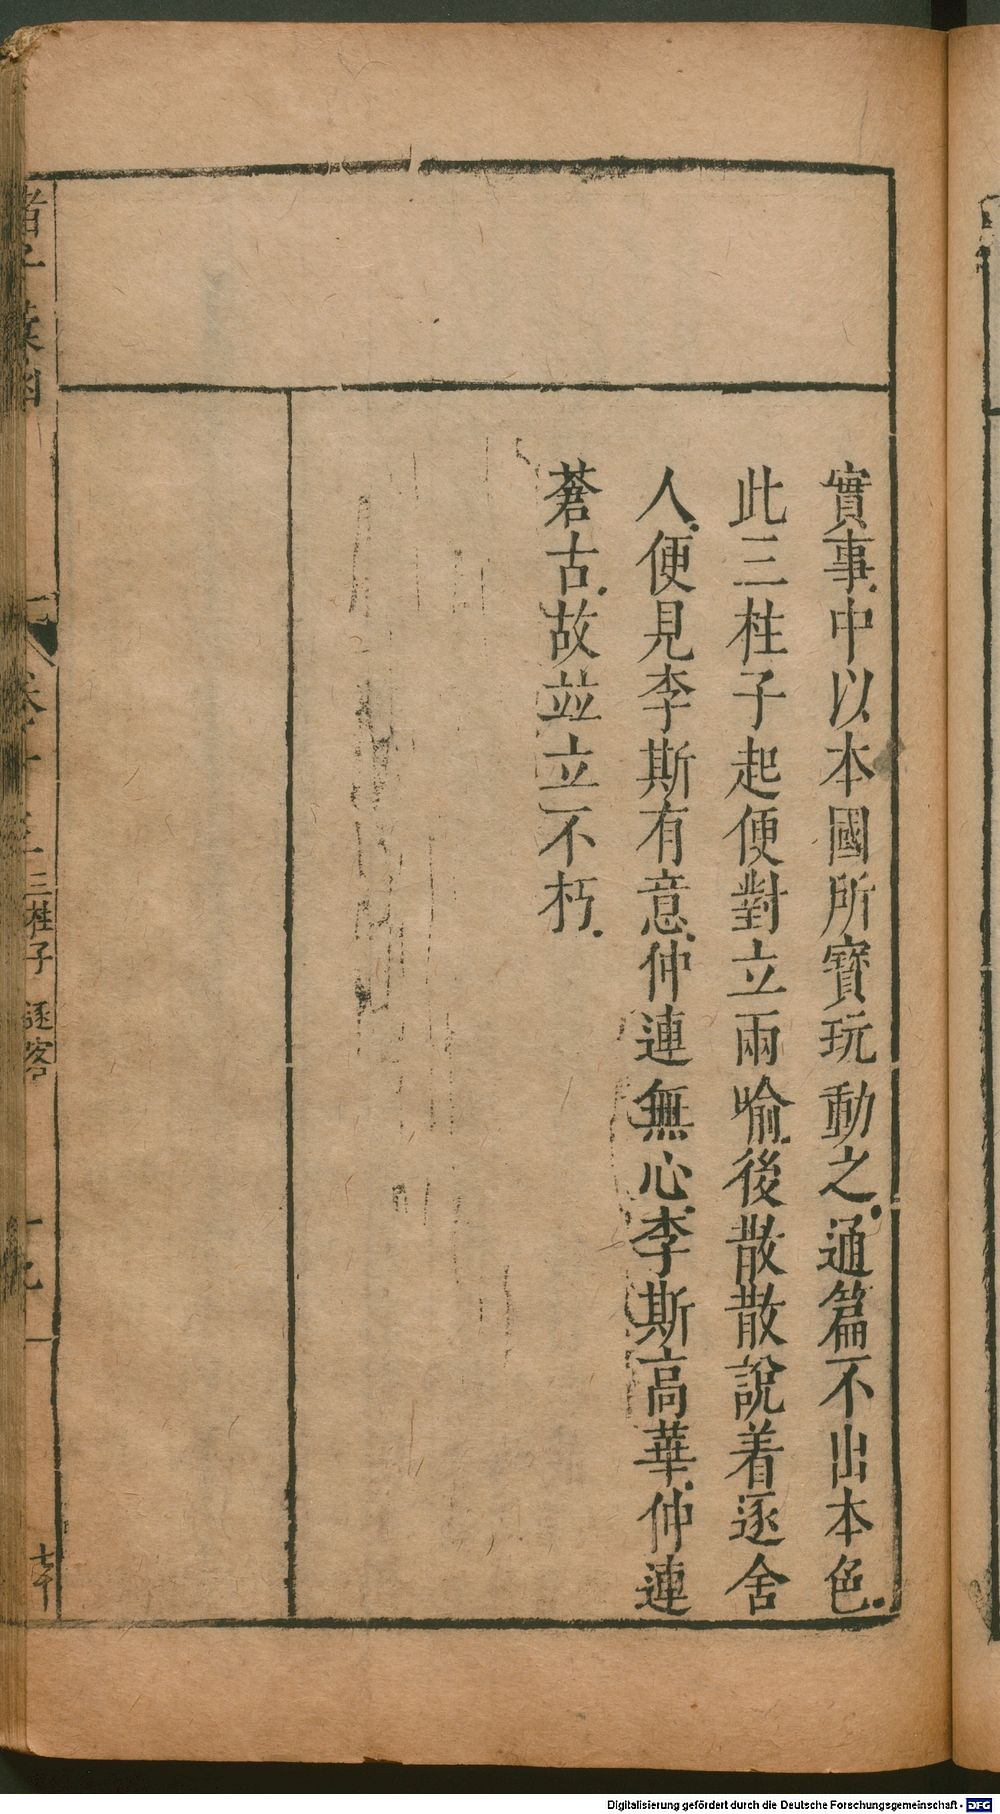 實事中以本國所寶玩動之通篇不出本色
此三柱子起便對立兩喻後散散說着逐舍
人便見李斯有意仲連無心李斯高華仲連
蒼古故並立不朽
三柱子 逐客
Digitalisierung gefördert durch die Deutsche Forschungsgemeinschaft - DFG